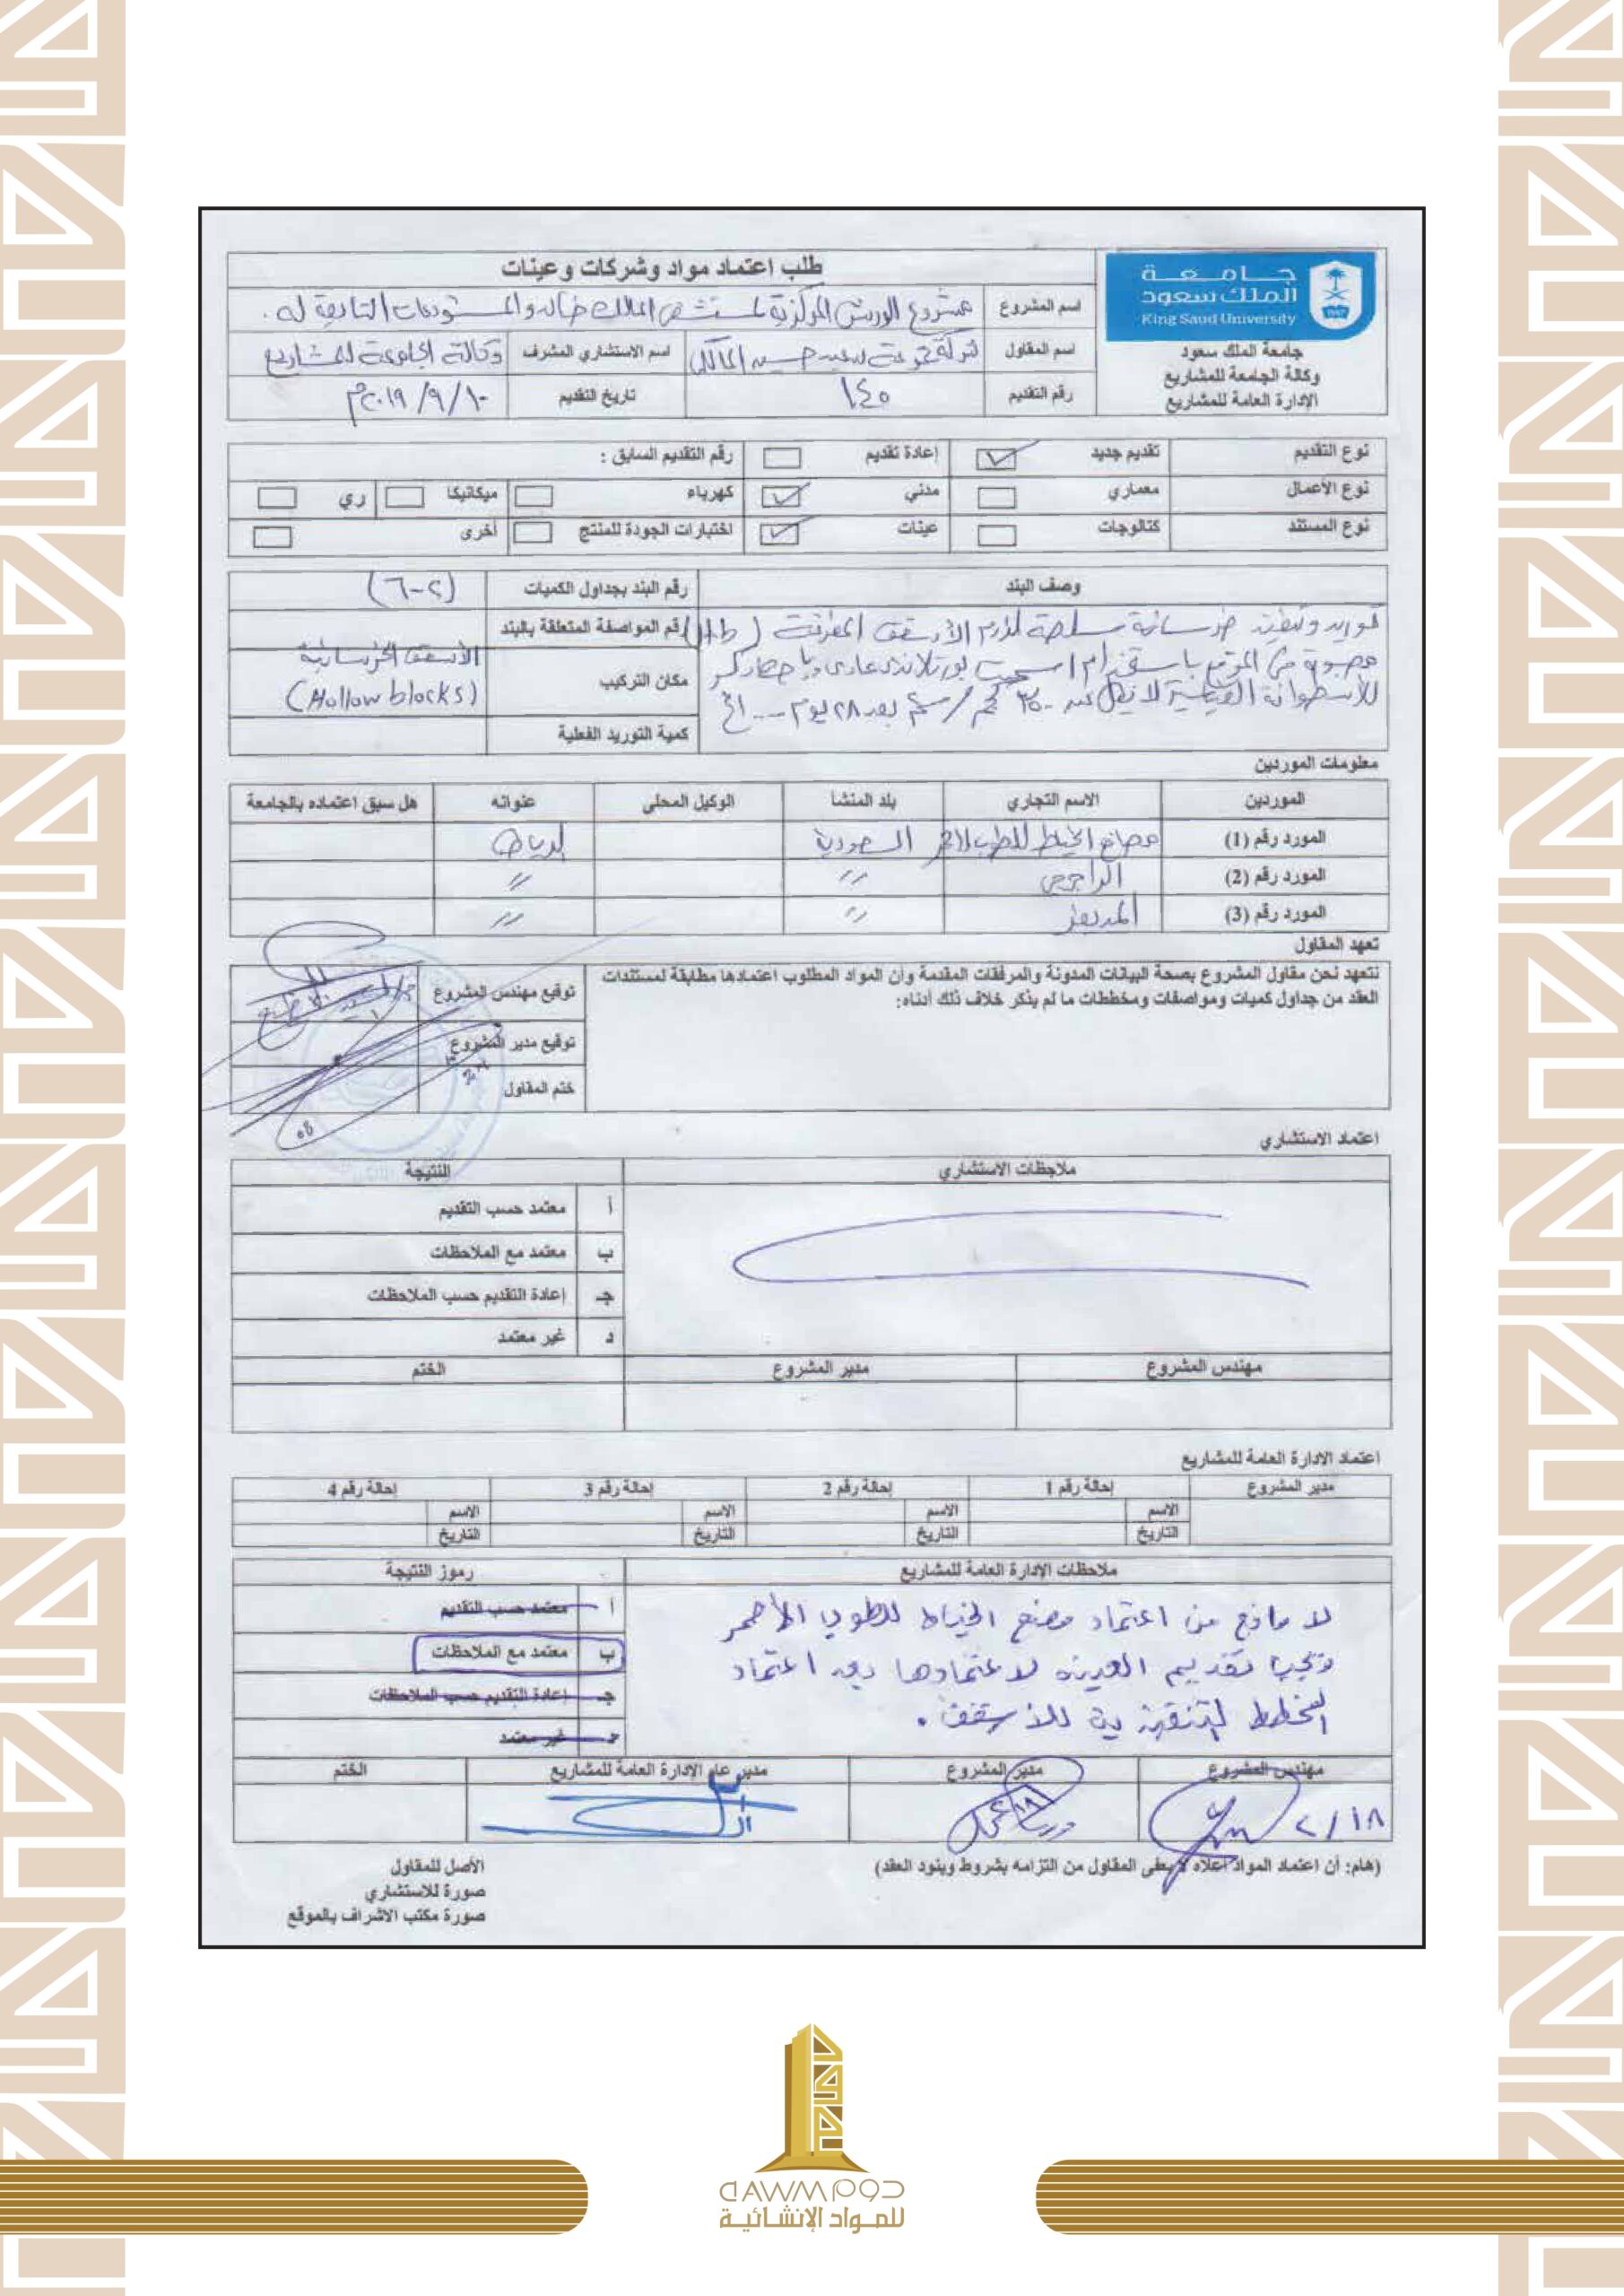 جامعة
الملك سعود
King Saud University
جامعة الملك سعود
وكالة الجامعة للمشاريع
الإدارة العامة للمشاريع
طلب اعتماد مواد وشركات وعينات
اسم المشروع مشروع الورش المركزية لمستشفى الملك خالد والمستودعات التابعة له .
اسم المقاول شركة مجموعة سعيد حسين المالكي اسم الاستشاري المشرف وكالة الجامعة للمشاريع
رقم التقديم ١٤٥ تاريخ التقديم ٢٠١٩/٩/١٠م
نوع التقديم تقديم جديد إعادة تقديم رقم التقديم السابق :
نوع الأعمال معماري مدني كهرباء ميكانيكا ري
نوع المستند كتالوجات عينات اختبارات الجودة للمنتج أخرى
وصف البند رقم البند بجداول الكميات (٢-٦)
توريد وتنفيذ خرسانة مسلحة لزوم الأسقف المفرغة
رقم المواصفة المتعلقة بالبند
مصبوبة في الموقع باستخدام اسمنت بورتلاندي عادي
للأسطوانة القياسية لا يقل عن ٣٥٠ كجم/سم بعد ٢٨ يوم ... الخ
مكان التركيب الأسقف الخرسانية
(Hollow blocks)
كمية التوريد الفعلية
معلومات الموردين
الموردين الاسم التجاري بلد المنشأ الوكيل المحلي عنوانه هل سبق اعتماده بالجامعة
المورد رقم (1) مصانع الخياط للطوب الأحمر السعودية الرياض
المورد رقم (2) الراجحي // //
المورد رقم (3) // //
تعهد المقاول
نتعهد نحن مقاول المشروع بصحة البيانات المدونة والمرفقات المقدمة وأن المواد المطلوب اعتمادها مطابقة لمستندات
العقد من جداول كميات ومواصفات ومخططات ما لم يذكر خلاف ذلك أدناه:
توقيع مهندس المشروع
توقيع مدير المشروع
ختم المقاول
اعتماد الاستشاري
ملاحظات الاستشاري النتيجة
أ معتمد حسب التقديم
ب معتمد مع الملاحظات
جـ إعادة التقديم حسب الملاحظات
د غير معتمد
مهندس المشروع مدير المشروع الختم
اعتماد الادارة العامة للمشاريع
مدير المشروع إحالة رقم 1 إحالة رقم 2 إحالة رقم 3 إحالة رقم 4
الاسم الاسم الاسم الاسم
التاريخ التاريخ التاريخ التاريخ
ملاحظات الإدارة العامة للمشاريع رموز النتيجة
لا مانع من اعتماد مصنع الخياط للطوب الأحمر
ويجب تقديم العينه لاعتمادها بعد اعتماد
المخطط التنفيذية للأسقف .
أ معتمد حسب التقديم
ب معتمد مع الملاحظات
جـ إعادة التقديم حسب الملاحظات
د غير معتمد
مهندس المشروع مدير المشروع مدير عام الإدارة العامة للمشاريع الختم
٢/١٨
(هام: أن اعتماد المواد أعلاه لا يعفي المقاول من التزامه بشروط وبنود العقد)
الأصل للمقاول
صورة للاستشاري
صورة مكتب الاشراف بالموقع
DAWM دوم
للمواد الإنشائية